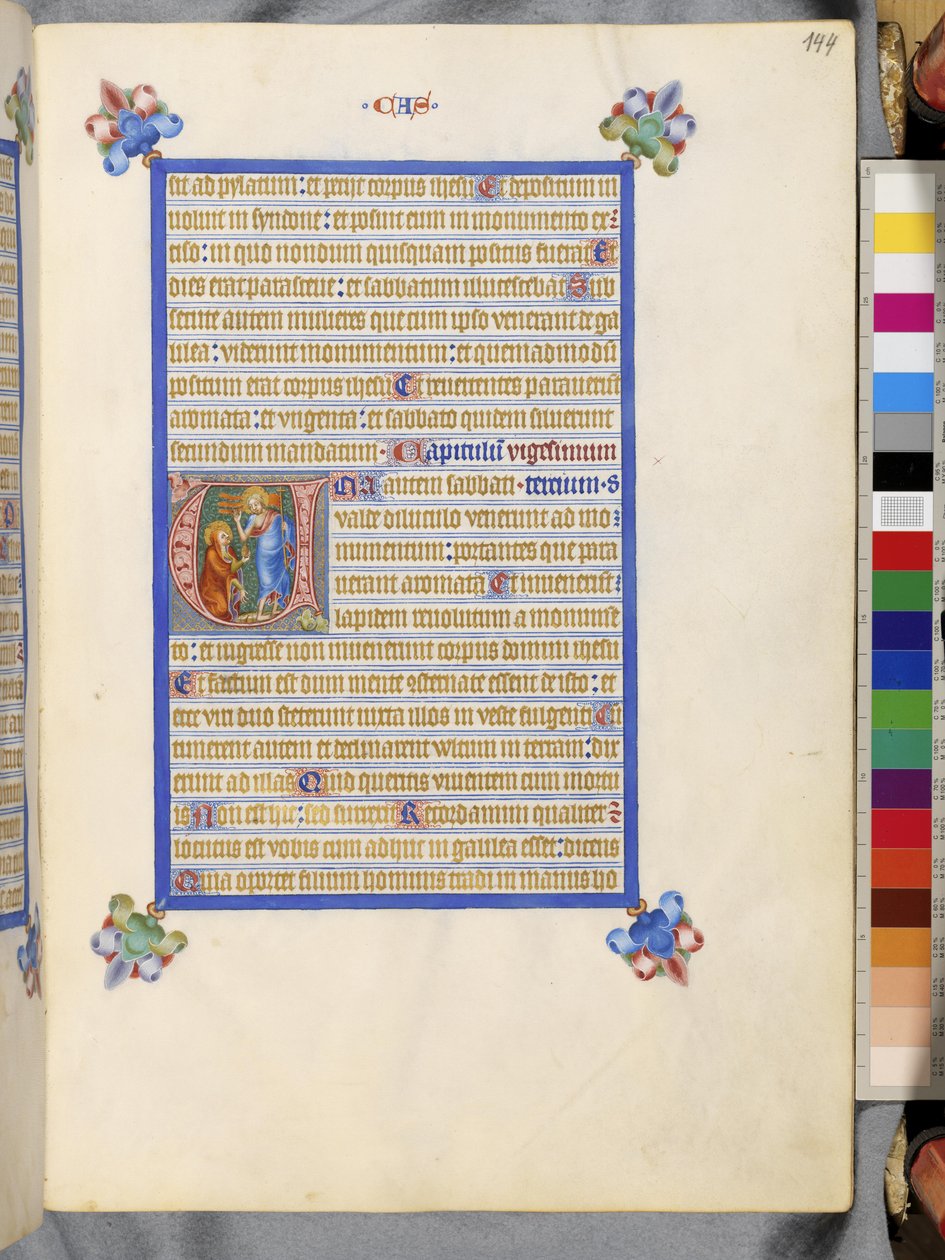 144
· CAS ·
sit ad pylatum : et petiit corpus ihesu Et depositum in
uoluit in syndone : et posuit eum in monumento ex
ciso : in quo nondum quisquam positus fuerat Et
dies erat parasceue : et sabbatum illucescebat Sub
secute autem mulieres que cum ipso venerant de ga
lilea : viderunt monumentum : et quemadmodū
positum erat corpus ihesu Et reuertentes parauerūt
aromata : et vngenta : et sabbato quidem siluerunt
secundum mandatum · Capitulū vigesimum
Una autem sabbati · tercium · 8
valde diluculo venerunt ad mo
numentum : portantes que para
uerant aromata Et inuenerūt
lapidem reuolutum a monumē
to : et ingresse non inuenerunt corpus domini ihesu
Et factum est dum mente ꝯsternate essent de isto : et
ecce viri duo steterunt iuxta illos in veste fulgenti Cū
timerent autem et declinarent vultum in terram : dix
erunt ad illas Quid queritis viuentem cum mortu
is Non est hic : sed surrexit Recordamini qualiter
locutus est vobis cum adhuc in galilea esset : dicens
Quia oportet filium hominis tradi in manus ho